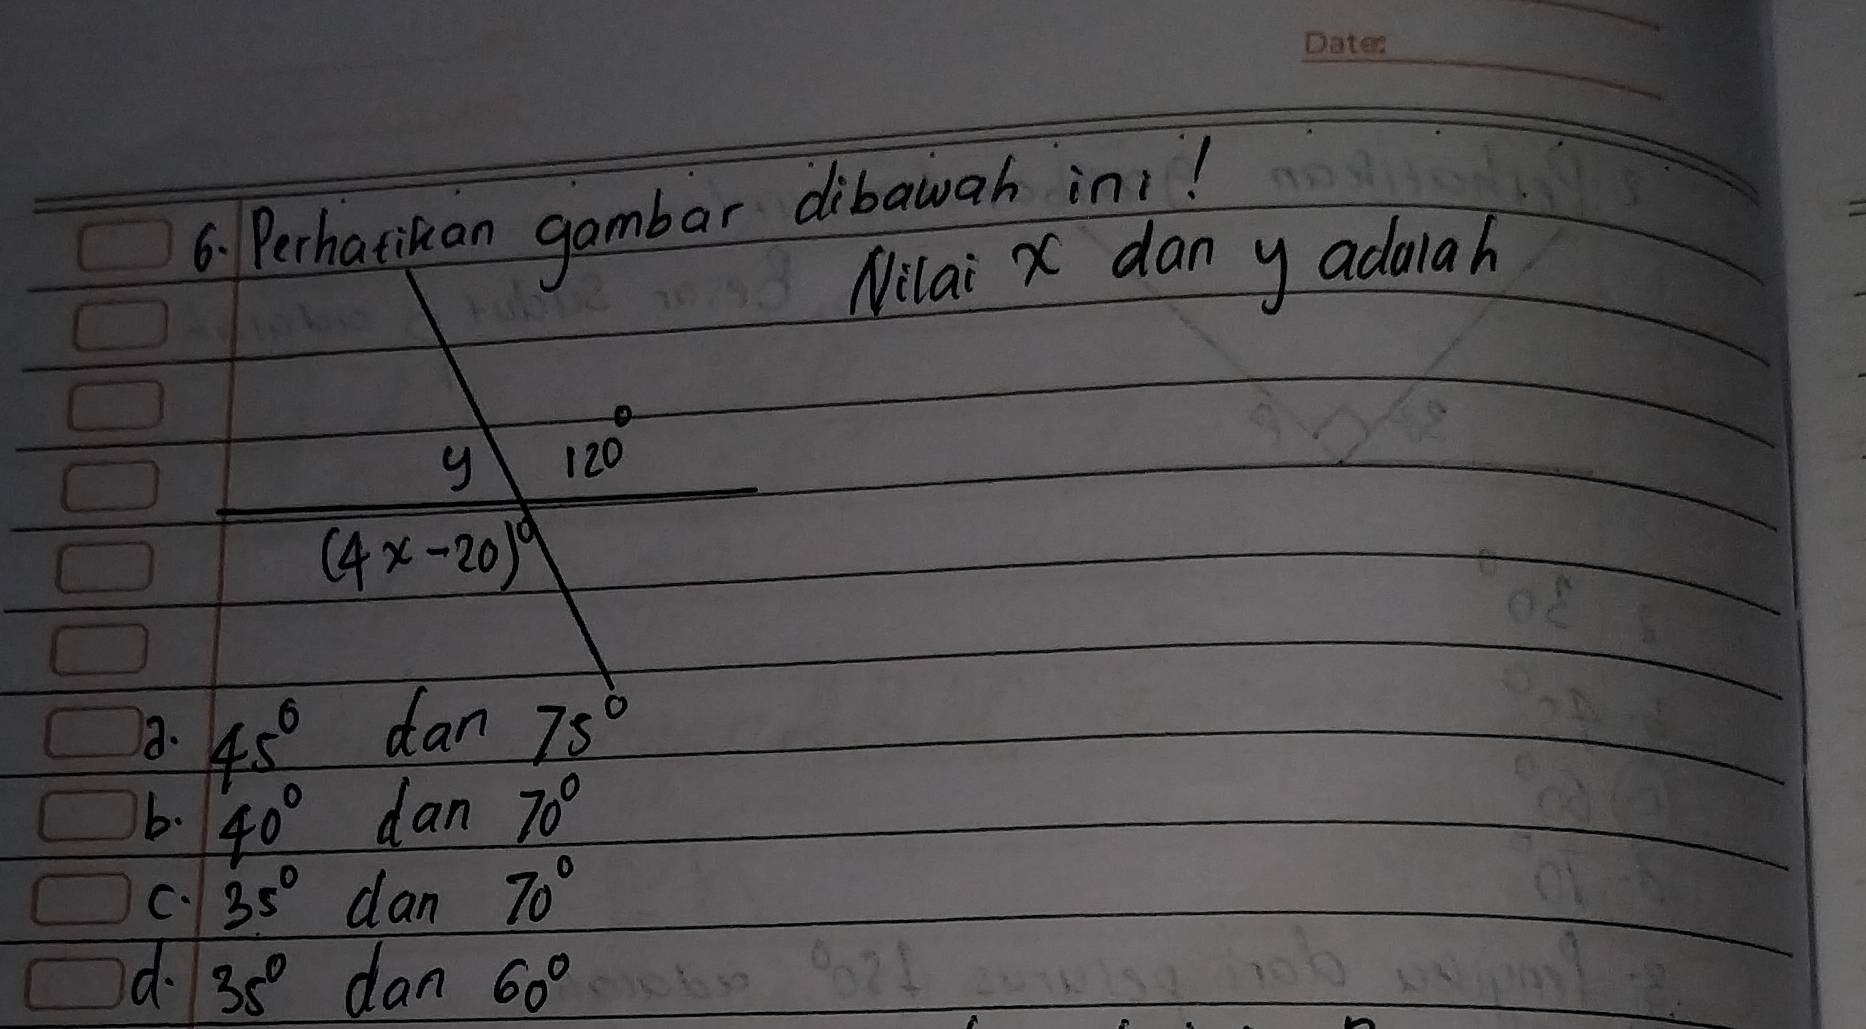 Date:
6. Perhatikan gambar dibawah ini!
Nilai x dan y adalah
y 120°
(4x-20)°
a. 45° dan 75°
b. 40° dan 70°
c. 35° dan 70°
d. 35° dan 60°